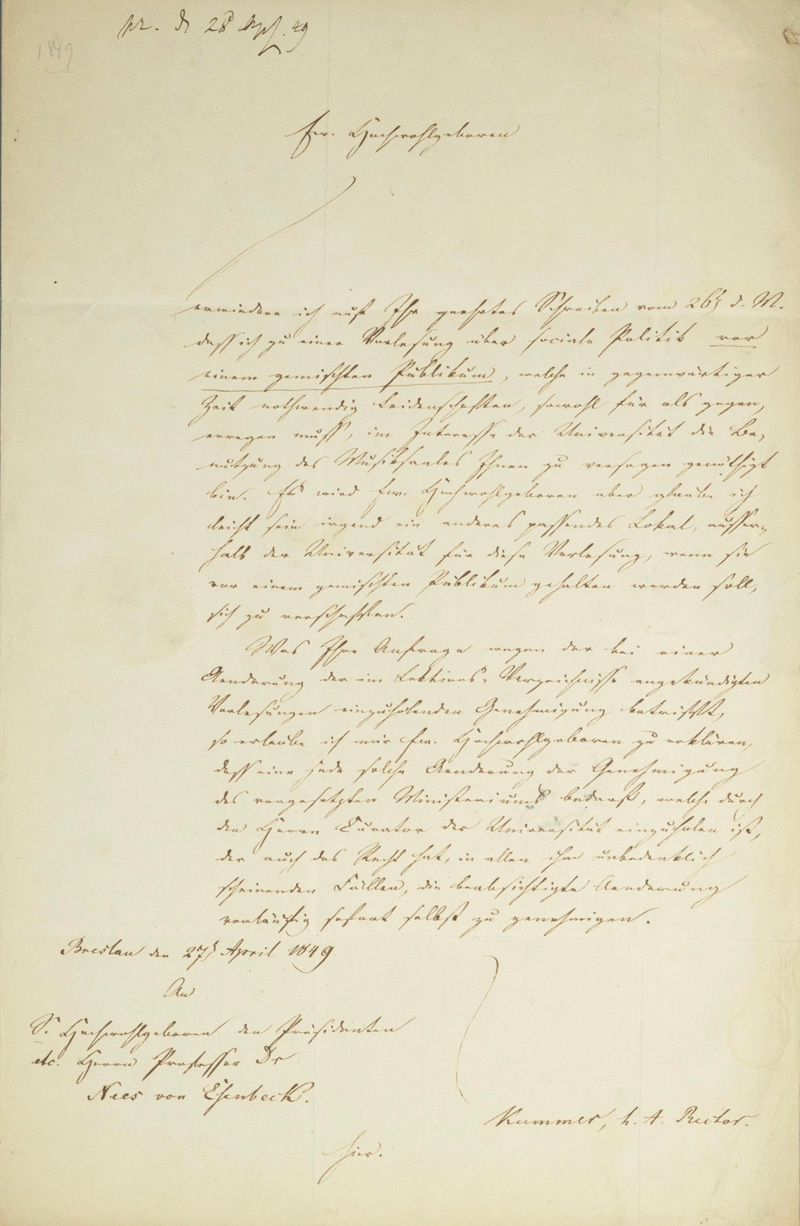 pr. d 28 Apl. 49
1849
Ew. Hochwohlgeboren
erwiedere ich auf Ihr geehrtes Schreiben vom 26t d. M.
dass ich zu einer Vorlesung über sociale Politik vor
einem gemischten Publikum, welche in gegenwärtiger
Zeit nothwendig Leidenschaften, sowohl für als gegen,
erregen muss, im Interesse der Universität die Be-
nutzung des Musiksaales Ihnen zu versagen genöthigt
bin. Es wird Ew. Hochwohlgeboren aber glaube ich
leicht sein irgend ein anderes passendes Lokal, ausser-
halb der Universität für diese Vorlesung, wenn sie
vor einem gemischten Publikum gehalten werden soll,
sich zu verschaffen.
Was Ihre Anfrage wegen der bei einer
Aenderung der im Lektions-Verzeichnisse angekündigten
Vorlesungen einzuholenden Genehmigung betrifft,
so erlaube ich mir Ew. Hochwohlgeboren zu erklären,
dass eine jede solche Aenderung der Genehmigung
des vorgesetzten Ministeriums bedarf, welche durch
den Herrn Curator der Universität einzuholen ist,
der auch das Recht hat, in allen ihm unbedenklich
scheinenden Fällen, die beabsichtigte Aenderung
vorläufig sofort selbst zu genehmigen.
Breslau den 27t April 1849
An
S. Hochwohlgeboren den Präsidenten
etc. Herrn Professor Dr
Nees von Esenbeck.
hier.
Kummer, h. A. Rector.